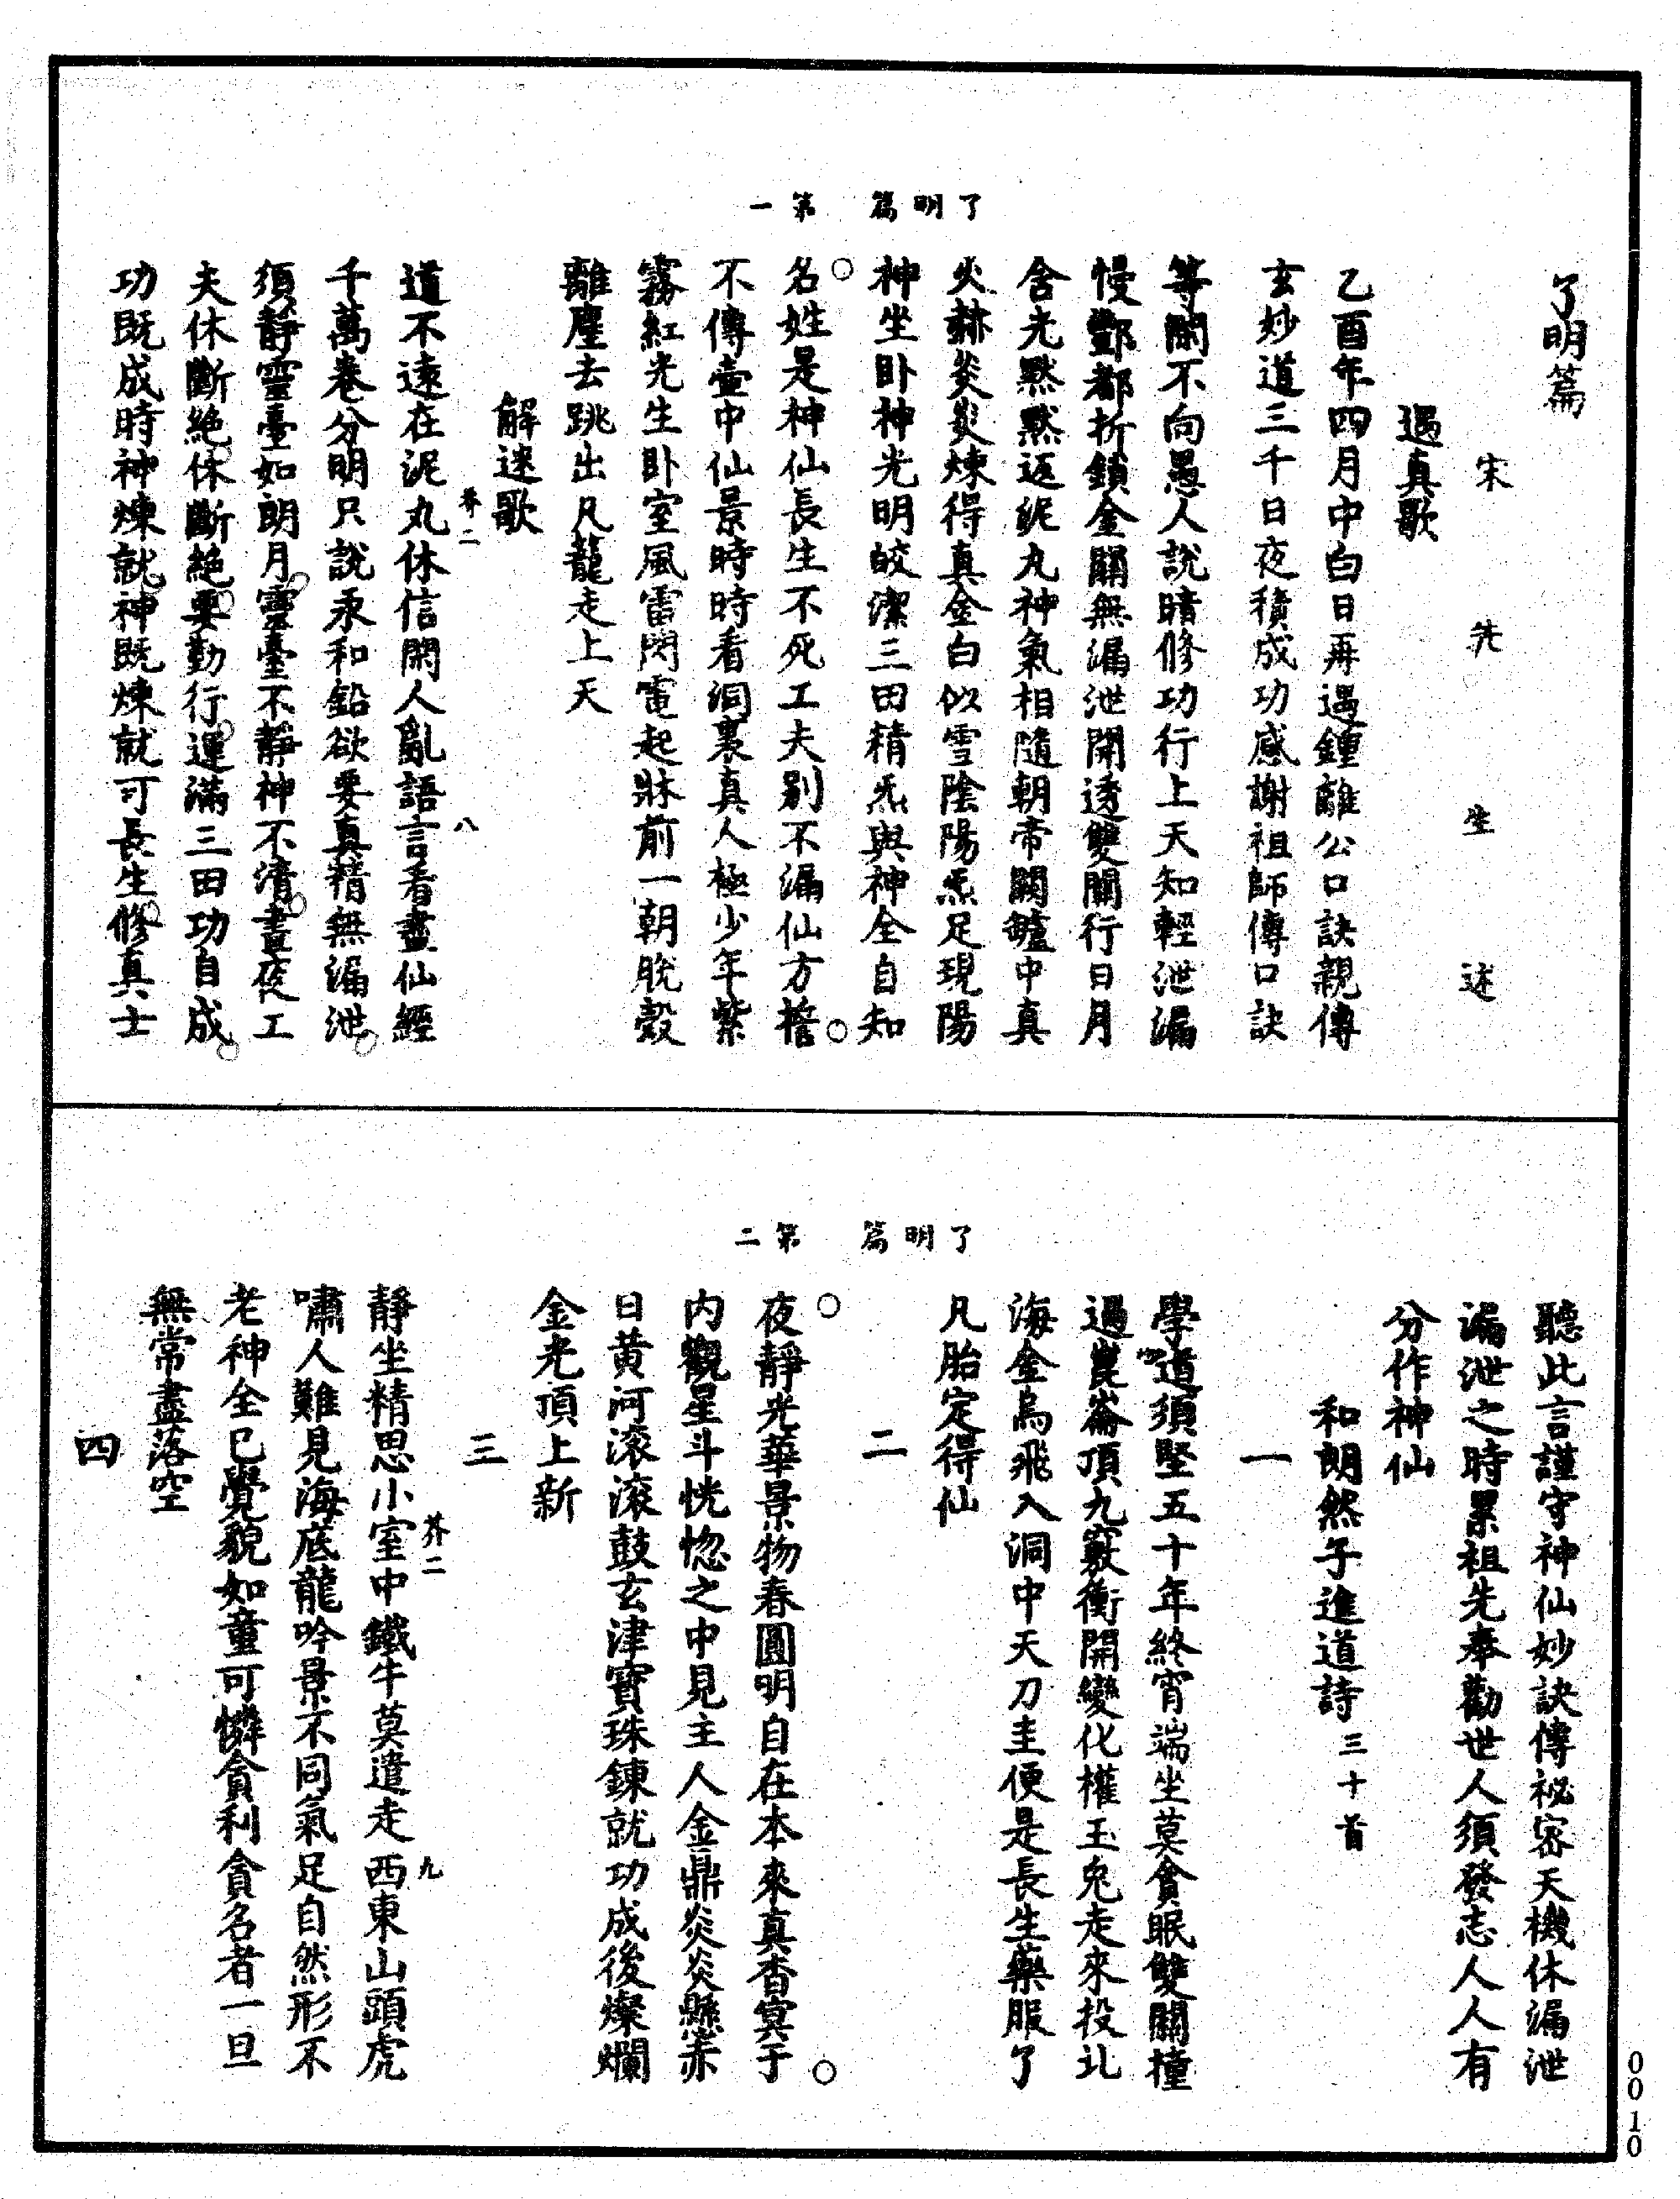 了明篇　第一
了明篇
宋先生述
遇真歌
乙酉年四月中白日再遇鍾離公口訣親傳
玄妙道三千日夜積成功感謝祖師傳口訣
等閑不向愚人說暗修功行上天知輕泄漏
慢酆都折鎖金關無漏泄開透雙關行日月
含光默默返泥丸神氣相隨朝帝闕鑪中真
火赫炎炎煉得真金白似雪陰陽炁足現陽
神坐卧神光明皎潔三田精炁與神全自知
名姓是神仙長生不死工夫別不漏仙方檐
不傳壺中仙景時時看洞裏真人極少年紫
霧紅光生卧室風雷閃電起牀前一朝脫殼
離塵去跳出凡籠走上天
解迷歌
芥二　八
道不遠在泥丸休信閑人亂語言看盡仙經
千萬卷分明只說汞和鉛欲要真精無漏泄
須靜靈臺如朗月靈臺不靜神不清晝夜工
夫休斷絕休斷絕要勤行運滿三田功自成
功既成時神煉就神既煉就可長生修真士
了明篇　第二
聽此言謹守神仙妙訣傳祕密天機休漏泄
漏泄之時累祖先奉勸世人須發志人人有
分作神仙
和朗然子進道詩三十首
一
學道須堅五十年終宵端坐莫貪眠雙關撞
過崑崙頂九竅衝開變化權玉兔走來投北
海金烏飛入洞中天刀圭便是長生藥服了
凡胎定得仙
二
夜靜光華景物春圓明自在本來真杳冥于
內觀星斗恍惚之中見主人金鼎炎炎懸赤
日黃河滾滾鼓玄津寶珠鍊就功成後燦爛
金光頂上新
三
芥二　九
靜坐精思小室中鐵牛莫遣走西東山頭虎
嘯人難見海底龍吟景不同氣足自然形不
老神全已覺貌如童可憐貪利貪名者一旦
無常盡落空
四
0010